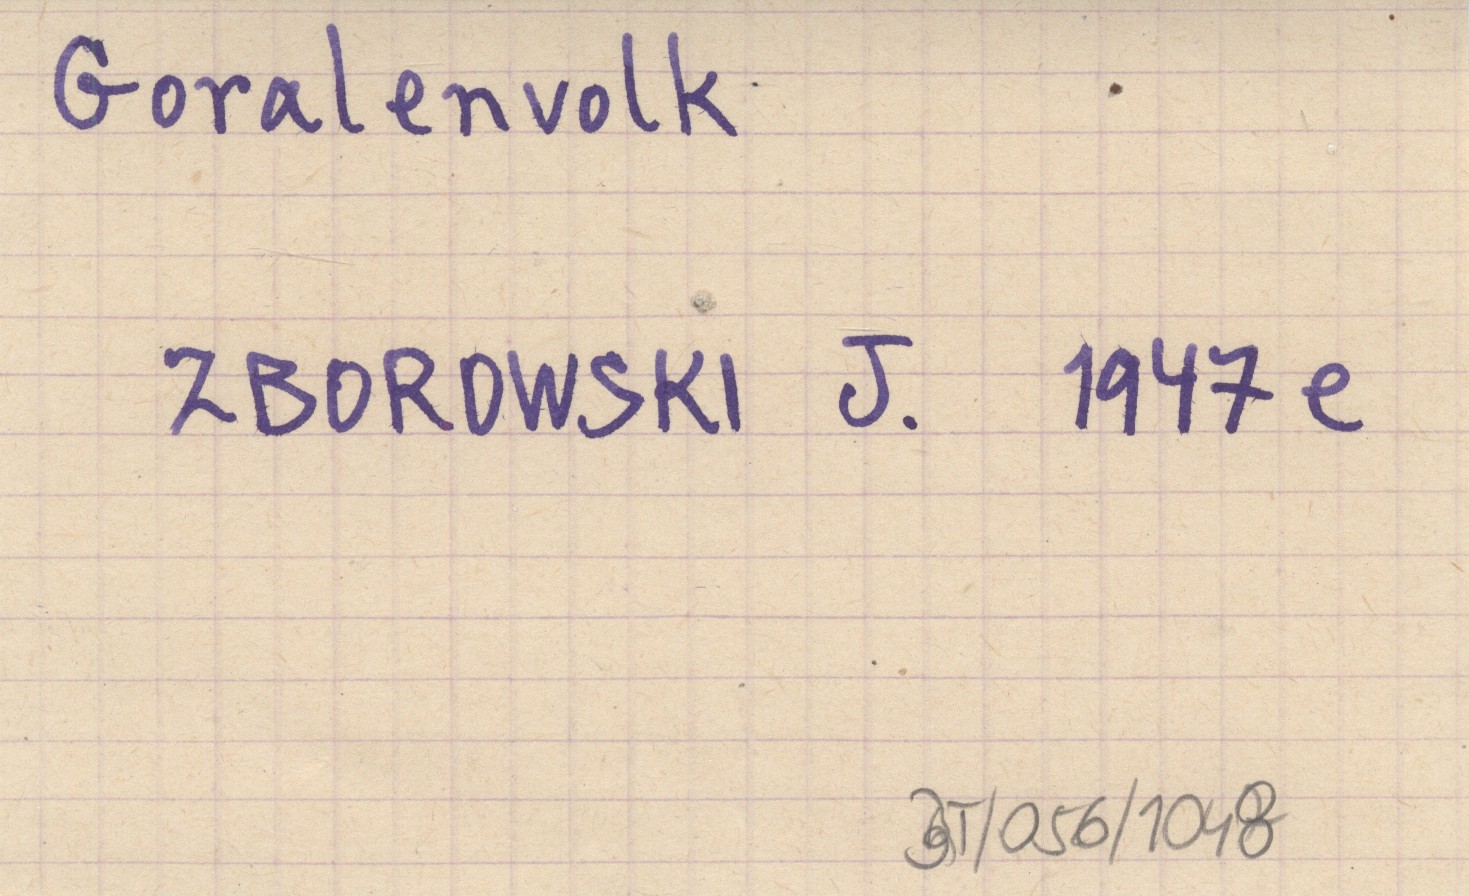 Goralenvolk
ZBOROWSKI J. 1947 e
/056/1048